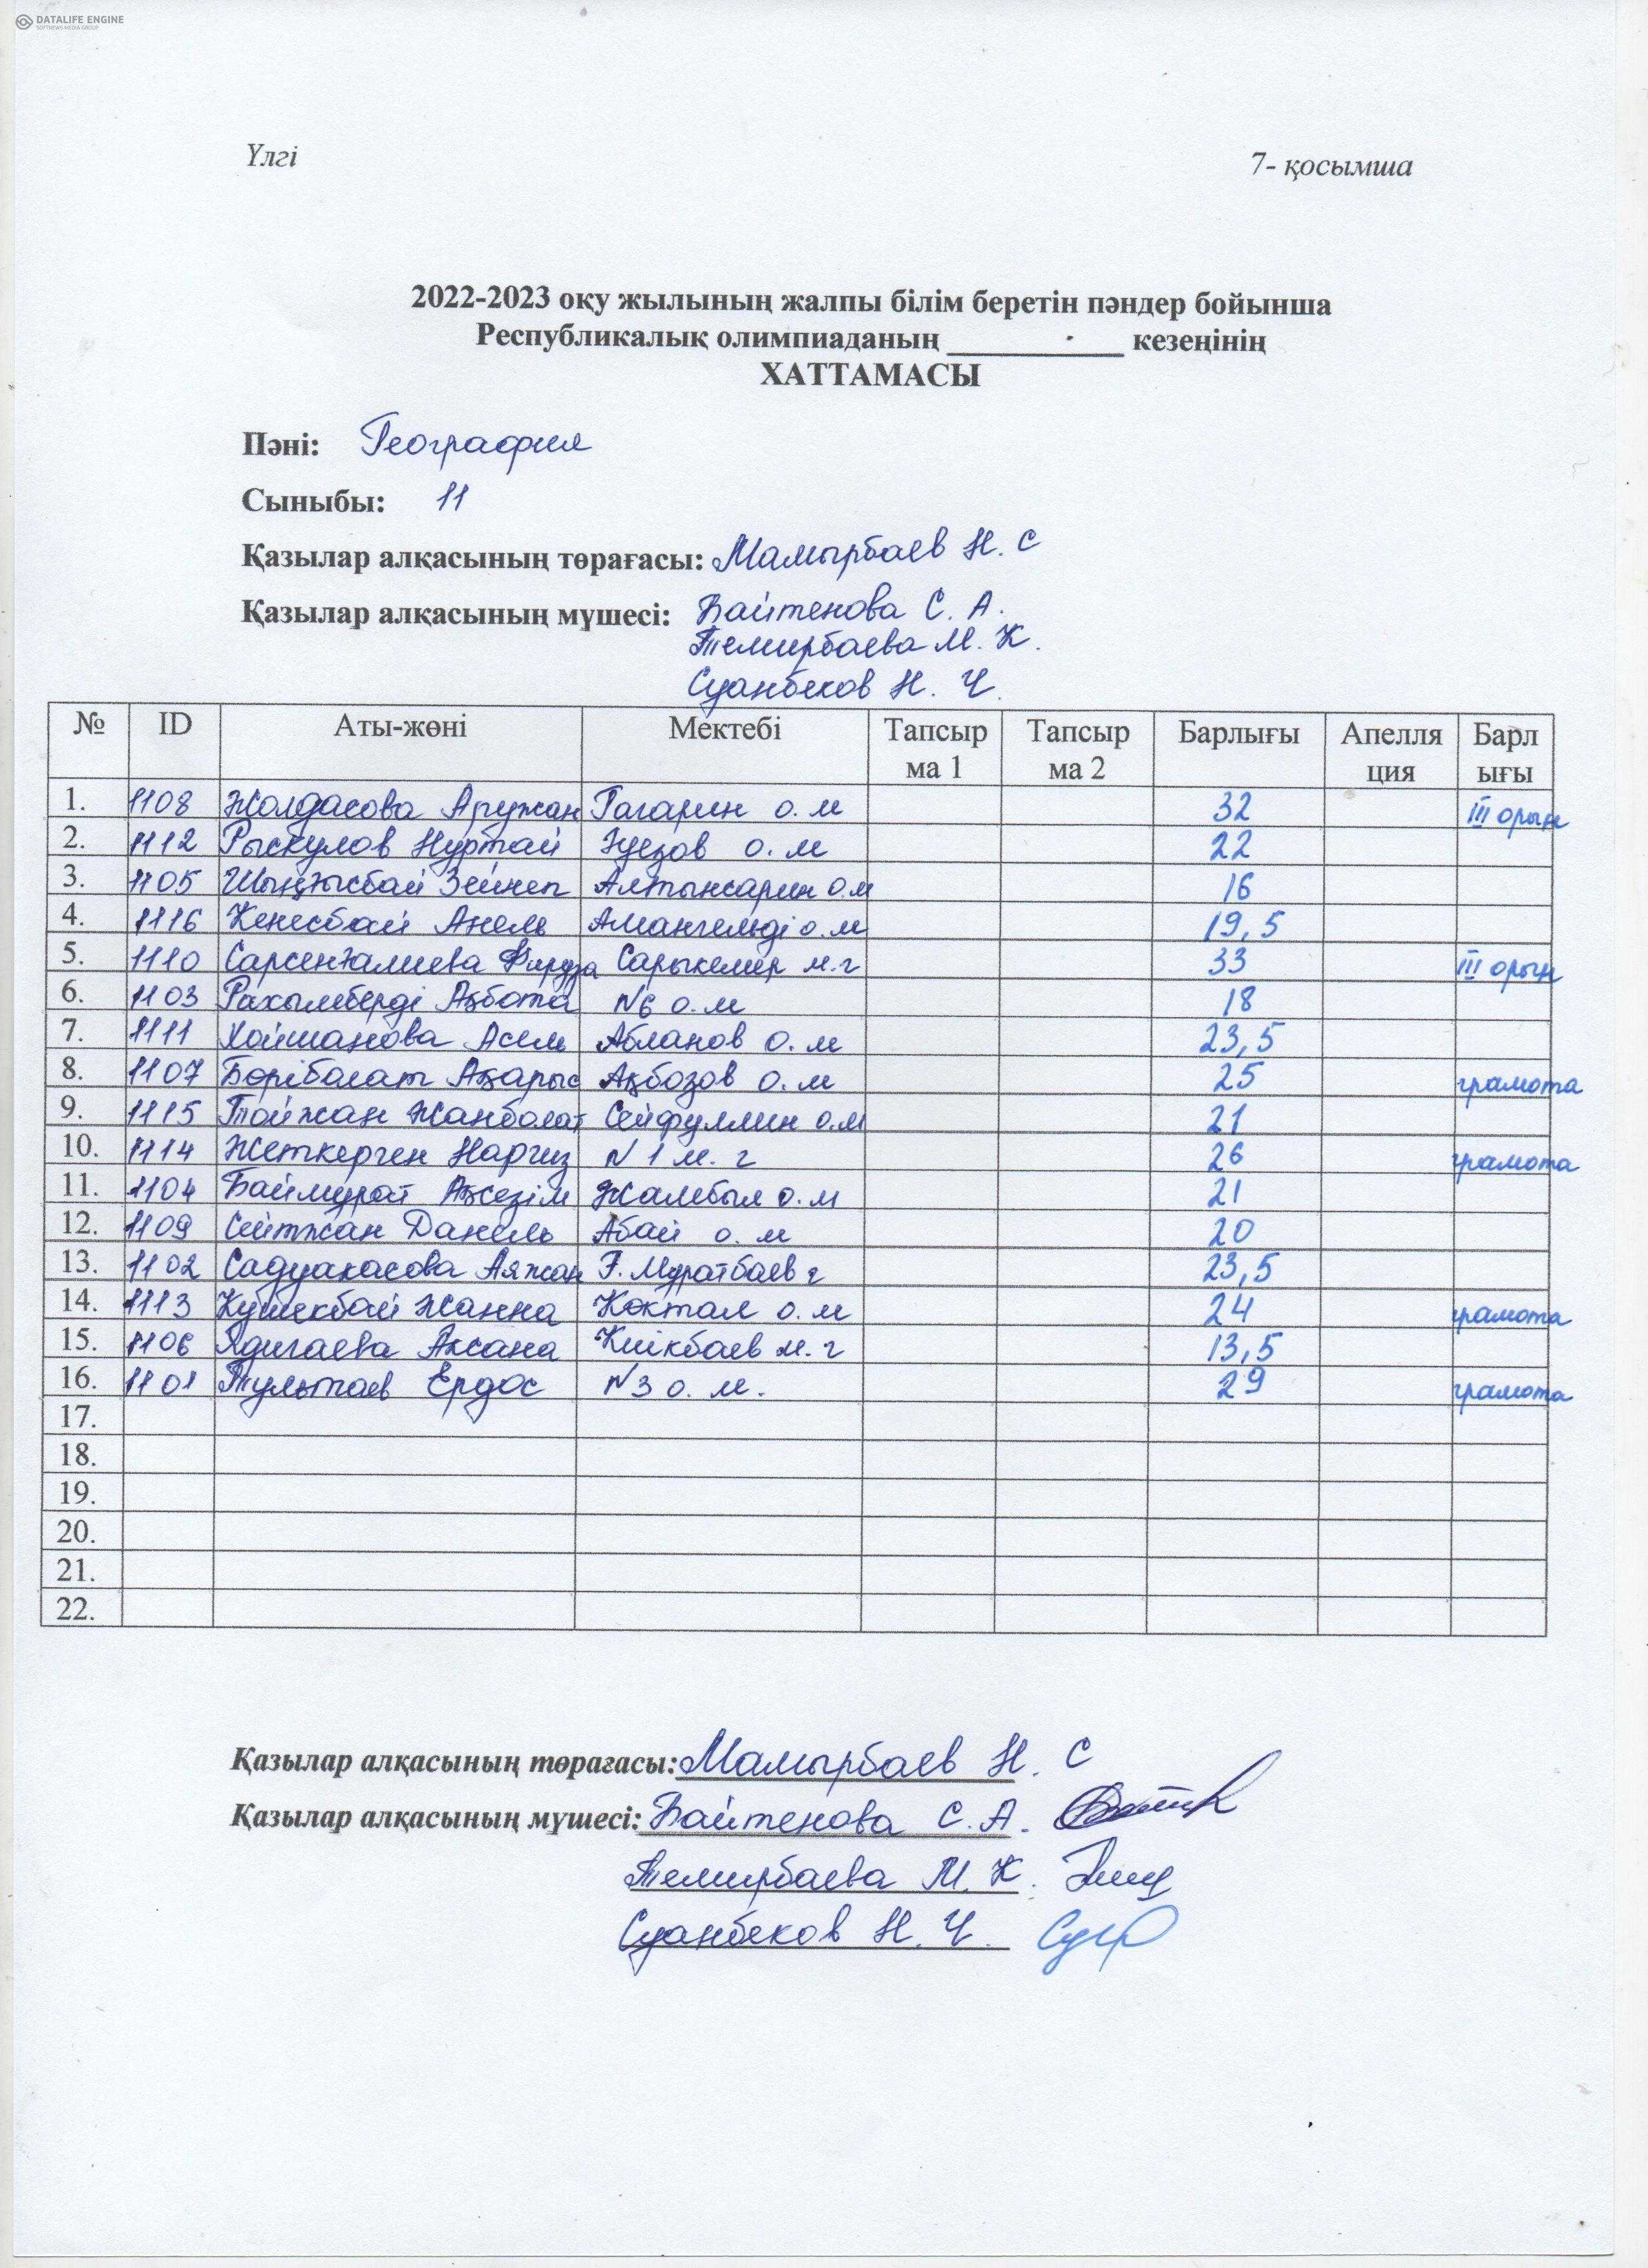 DATALIFE ENGINE
SOFTNEWS MEDIA GROUP
Үлгі
7- қосымша
2022-2023 оқу жылының жалпы білім беретін пәндер бойынша
Республикалық олимпиаданың ____________ кезеңінің
ХАТТАМАСЫ
Пәні: География
Сыныбы: 11
Қазылар алқасының төрағасы: Мамырбаев Н. С
Қазылар алқасының мүшесі: Байтенова С. А.
Темирбаева М. К.
Суанбеков Н. Ч.
№ ID Аты-жөні Мектебі Тапсыр ма 1 Тапсыр ма 2 Барлығы Апелля ция Барл ығы
1. 1108 Жолдасова Аружан Гагарин о. м 32 III орын
2. 1112 Рыскулов Нуртай Әуезов о. м 22
3. 1105 Шыңғысбай Зейнеп Алтынсарин о.м 16
4. 1116 Кенесбай Анель Амангельді о. м 19,5
5. 1110 Сарсенғалиева Сарыкемер м. г 33 III орын
6. 1103 Рахымберді Ақбота №6 о. м 18
7. 1111 Койшанова Асель Абланов о. м 23,5
8. 1107 Бөрібагат Ақарыс Ақбозов о. м 25 грамота
9. 1115 Тойжан Жанболат Сейфуллин о.м 21
10. 1114 Жеткерген Наргиз №1 м. г 26 грамота
11. 1104 Баймурат Ақсезім Жамбыл о. м 21
12. 1109 Сейтжан Данель Абай о. м 20
13. 1102 Садуакасова Аяжан Ғ. Мұратбаев г 23,5
14. 1113 Күшекбай Жанна Көктал о. м 24 грамота
15. 1106 Ядигаева Аксана Киікбаев м. г 13,5
16. 1101 Тультаев Ердос №3 о. м. 29 грамота
17.
18.
19.
20.
21.
22.
Қазылар алқасының төрағасы: Мамырбаев Н. С
Қазылар алқасының мүшесі: Байтенова С. А.
Темирбаева М. К.
Суанбеков Н. Ч.